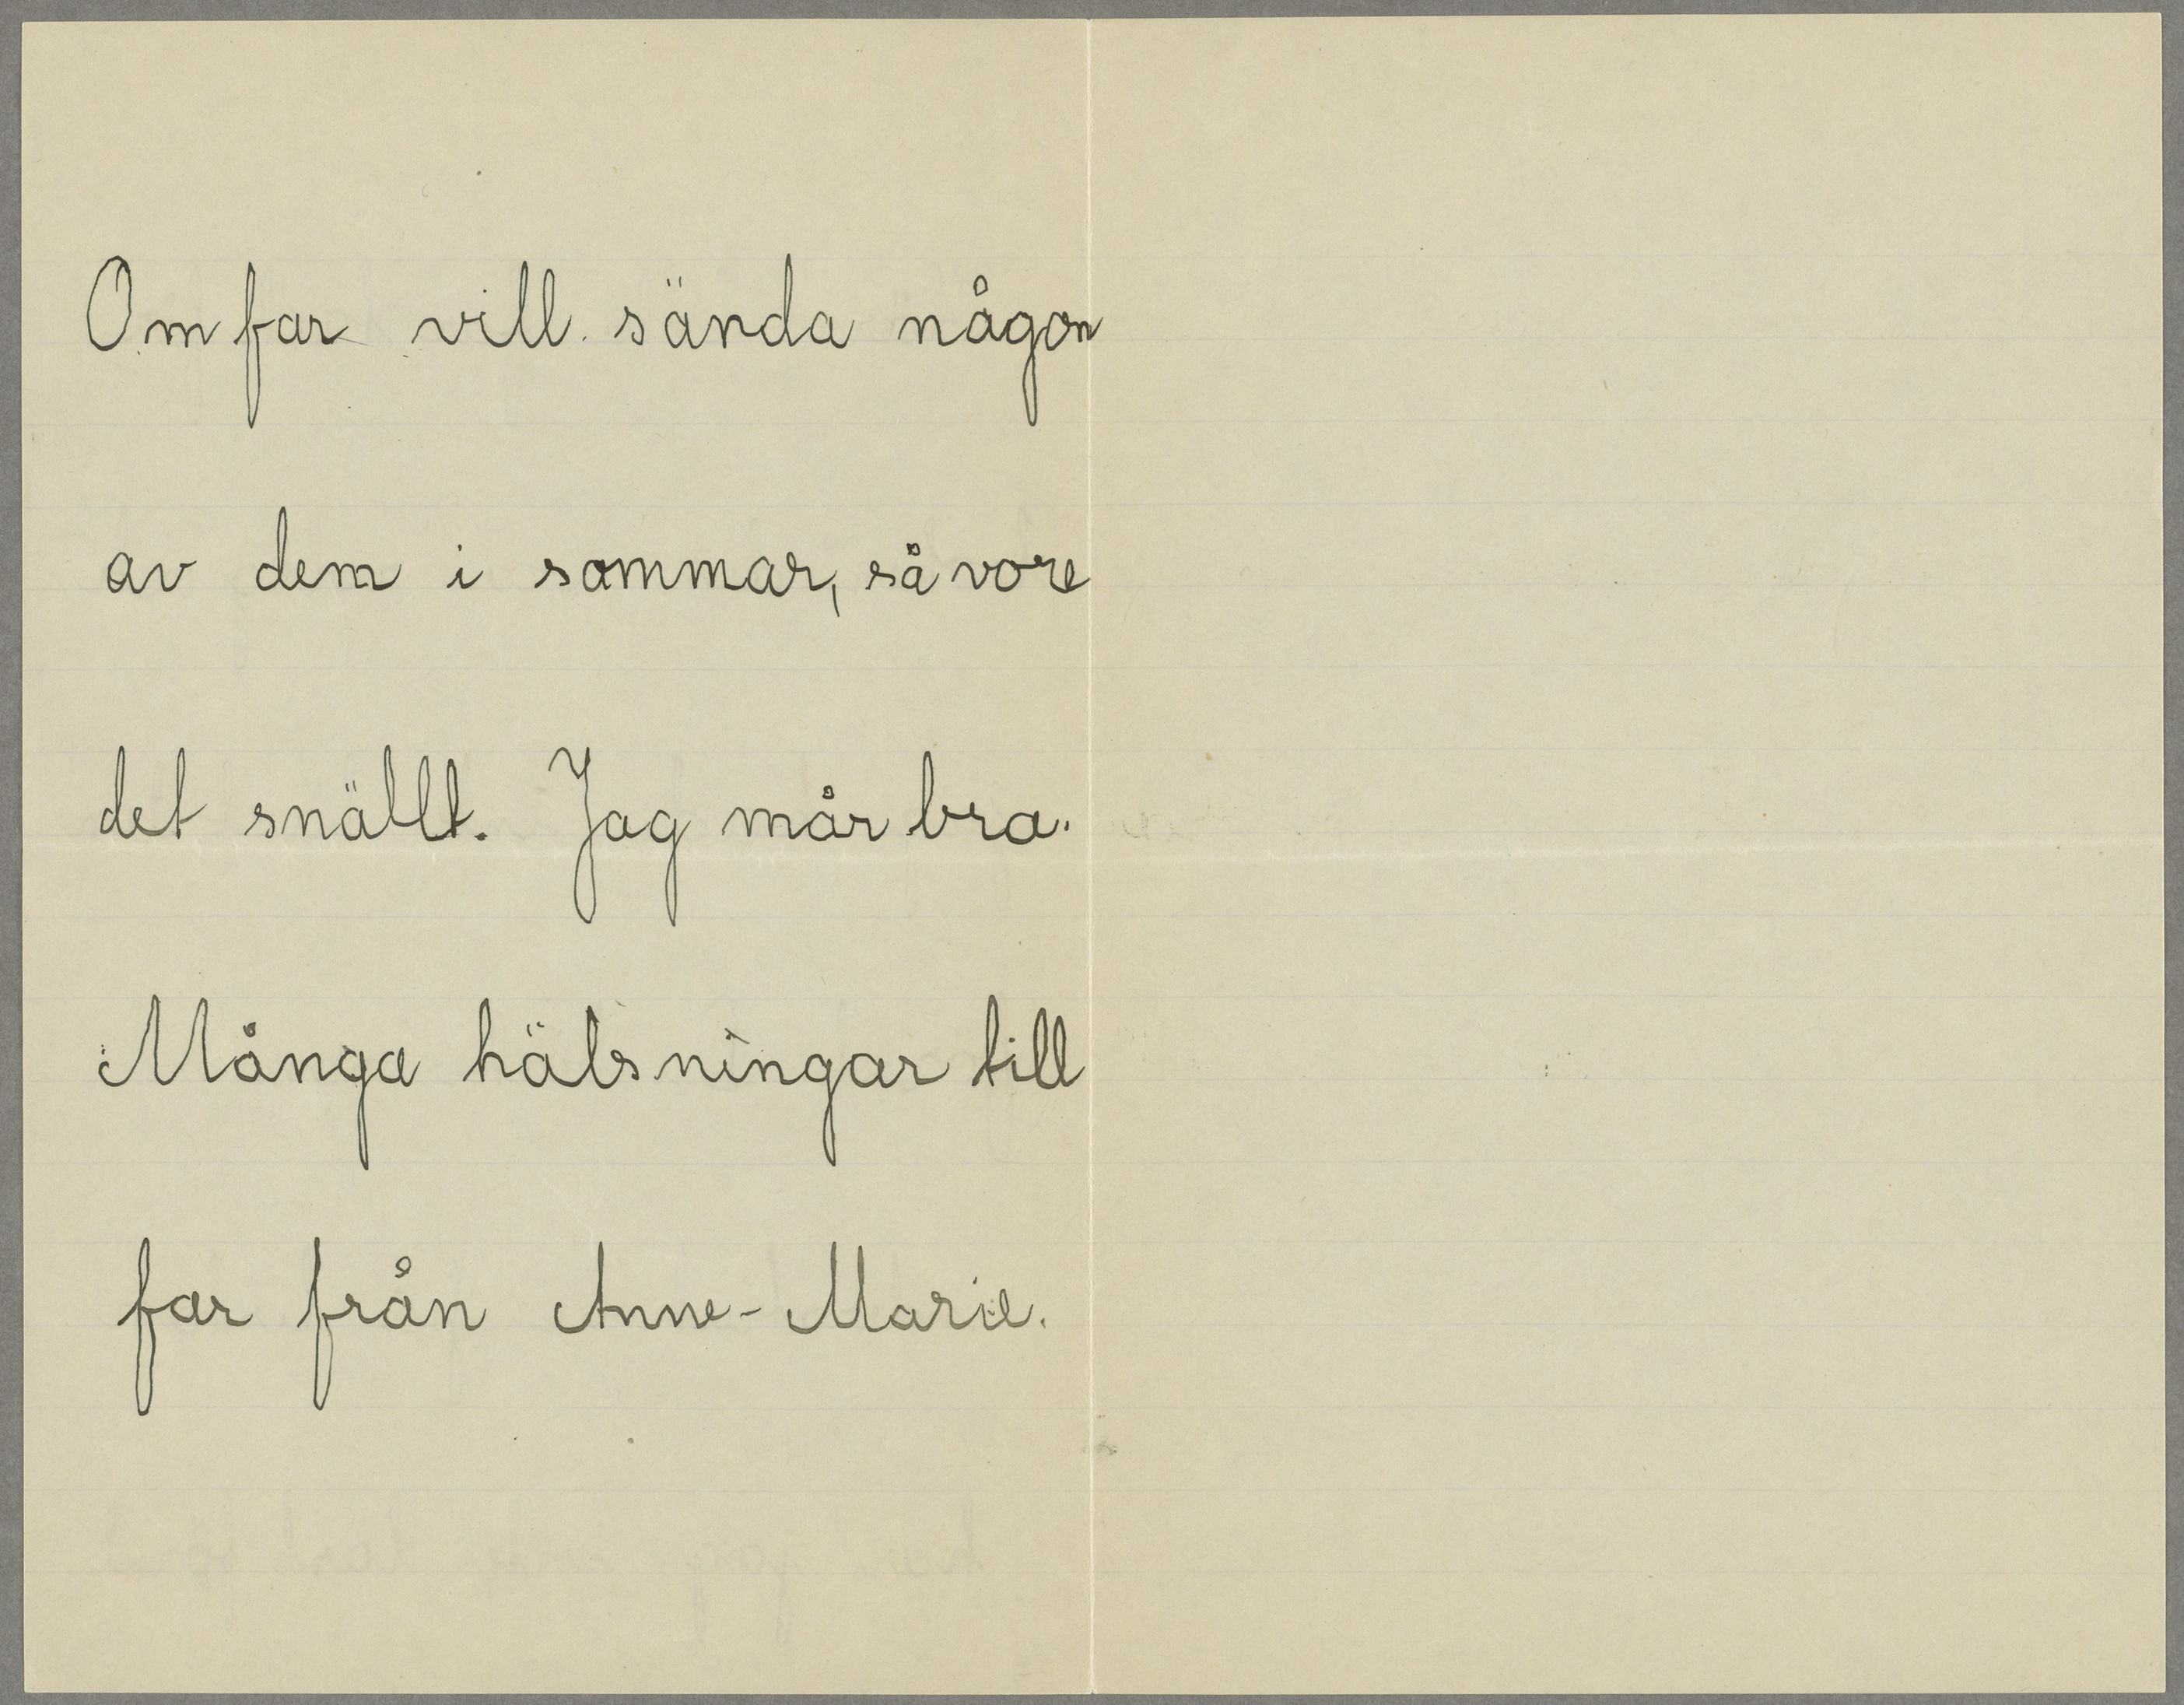 Om far vill sända någon
av dem i sommar, så vore
det snällt. Jag mår bra.
Många hälsningar till
far från Anne-Marie.